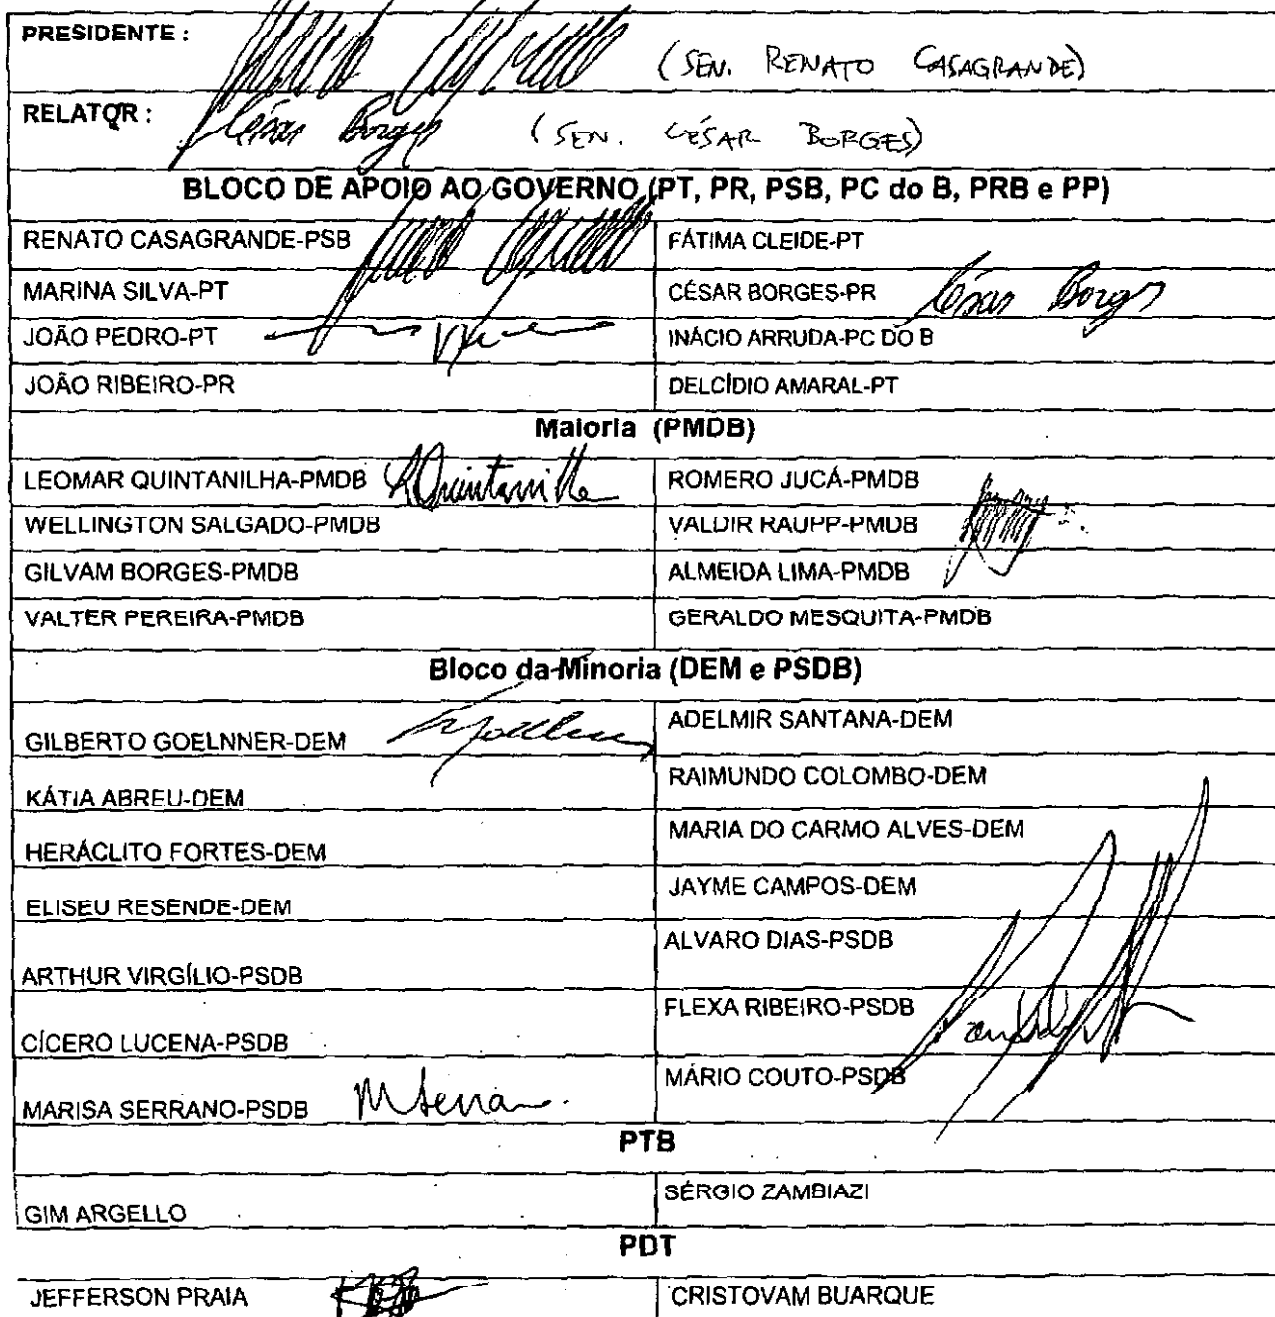 PRESIDENTE : (SEN. RENATO CASAGRANDE)
RELATOR : César Borges (SEN. CÉSAR BORGES)
BLOCO DE APOIO AO GOVERNO (PT, PR, PSB, PC do B, PRB e PP)
RENATO CASAGRANDE-PSB FÁTIMA CLEIDE-PT
MARINA SILVA-PT CÉSAR BORGES-PR César Borges
JOÃO PEDRO-PT INÁCIO ARRUDA-PC DO B
JOÃO RIBEIRO-PR DELCÍDIO AMARAL-PT
Maioria (PMDB)
LEOMAR QUINTANILHA-PMDB LQuintanilha ROMERO JUCÁ-PMDB
WELLINGTON SALGADO-PMDB VALDIR RAUPP-PMDB
GILVAM BORGES-PMDB ALMEIDA LIMA-PMDB
VALTER PEREIRA-PMDB GERALDO MESQUITA-PMDB
Bloco da Minoria (DEM e PSDB)
GILBERTO GOELNNER-DEM ADELMIR SANTANA-DEM
KÁTIA ABREU-DEM RAIMUNDO COLOMBO-DEM
HERÁCLITO FORTES-DEM MARIA DO CARMO ALVES-DEM
ELISEU RESENDE-DEM JAYME CAMPOS-DEM
ARTHUR VIRGÍLIO-PSDB ALVARO DIAS-PSDB
CÍCERO LUCENA-PSDB FLEXA RIBEIRO-PSDB
MARISA SERRANO-PSDB MSerrano MÁRIO COUTO-PSDB
PTB
GIM ARGELLO SÉRGIO ZAMBIAZI
PDT
JEFFERSON PRAIA CRISTOVAM BUARQUE